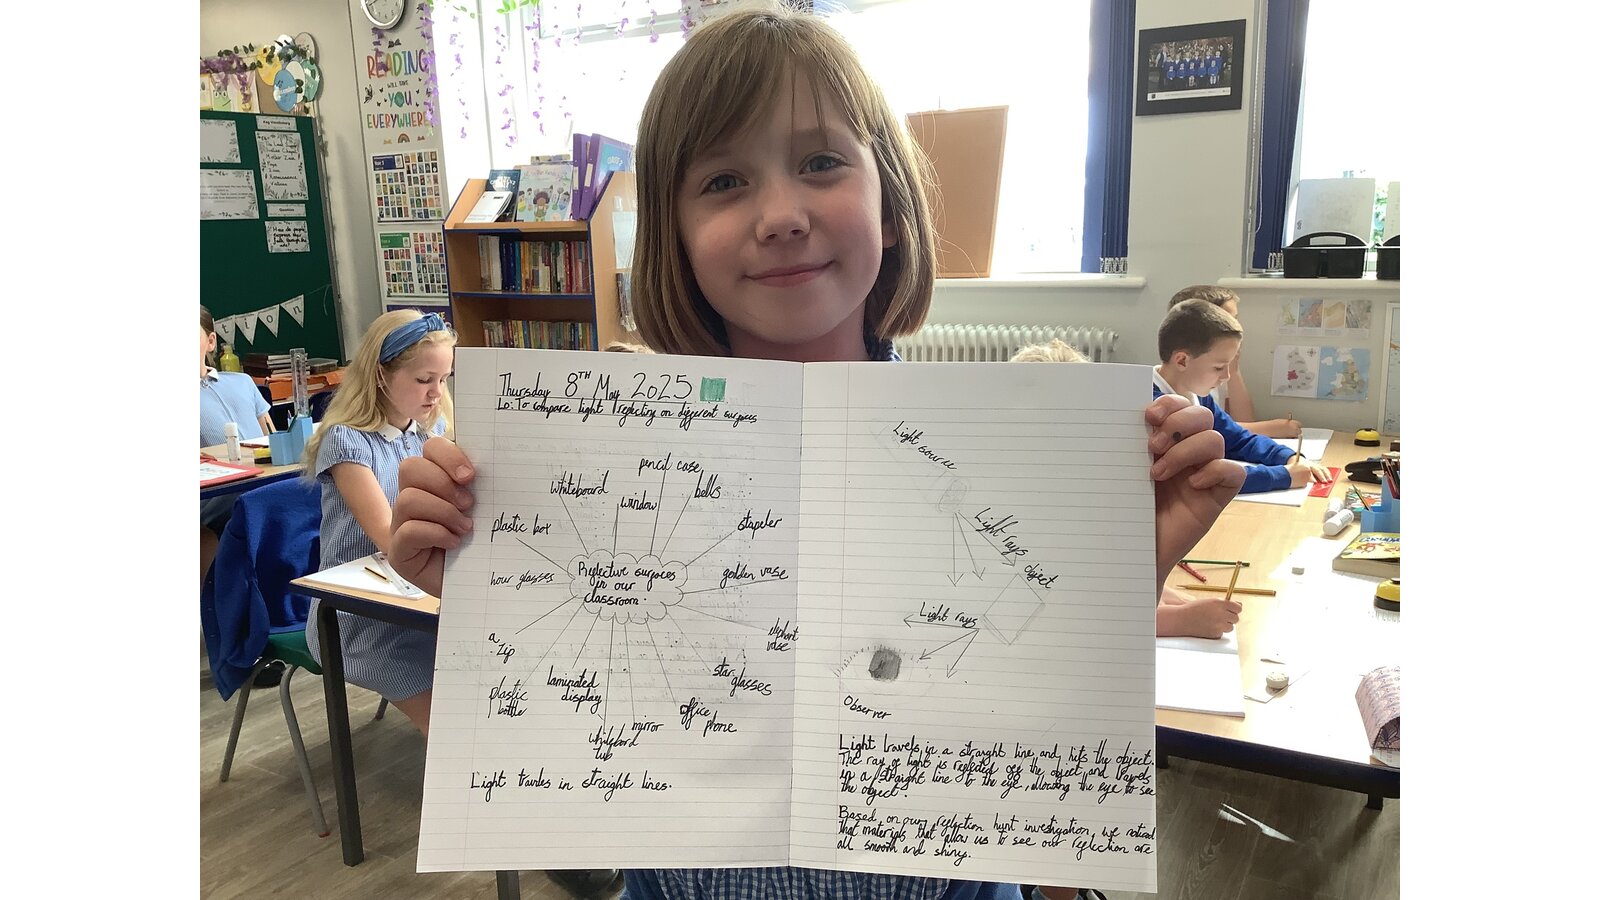 READING
WILL TAKE
YOU
EVERYWHERE
Thursday 8TH May 2025
Lo: To compare light reflecting on different surfaces
pencil case
whiteboard
window
bells
plastic box
stapler
hour glasses
Reflective surfaces
in our
classroom.
golden vase
a
zip
elephant
vase
plastic
bottle
laminated
display
star
glasses
office
phone
mirror
whitebord
tub
Light travles in straight lines.
Light source
Light rays
object
Light rays
Observer
Light travels in a straight line and hits the object.
The ray of light is reflected off the object and travels
in a straight line to the eye, allowing the eye to see
the object.
Based on our reflection hunt investigation, we noticed
that materials that allow us to see our reflection are
all smooth and shiny.